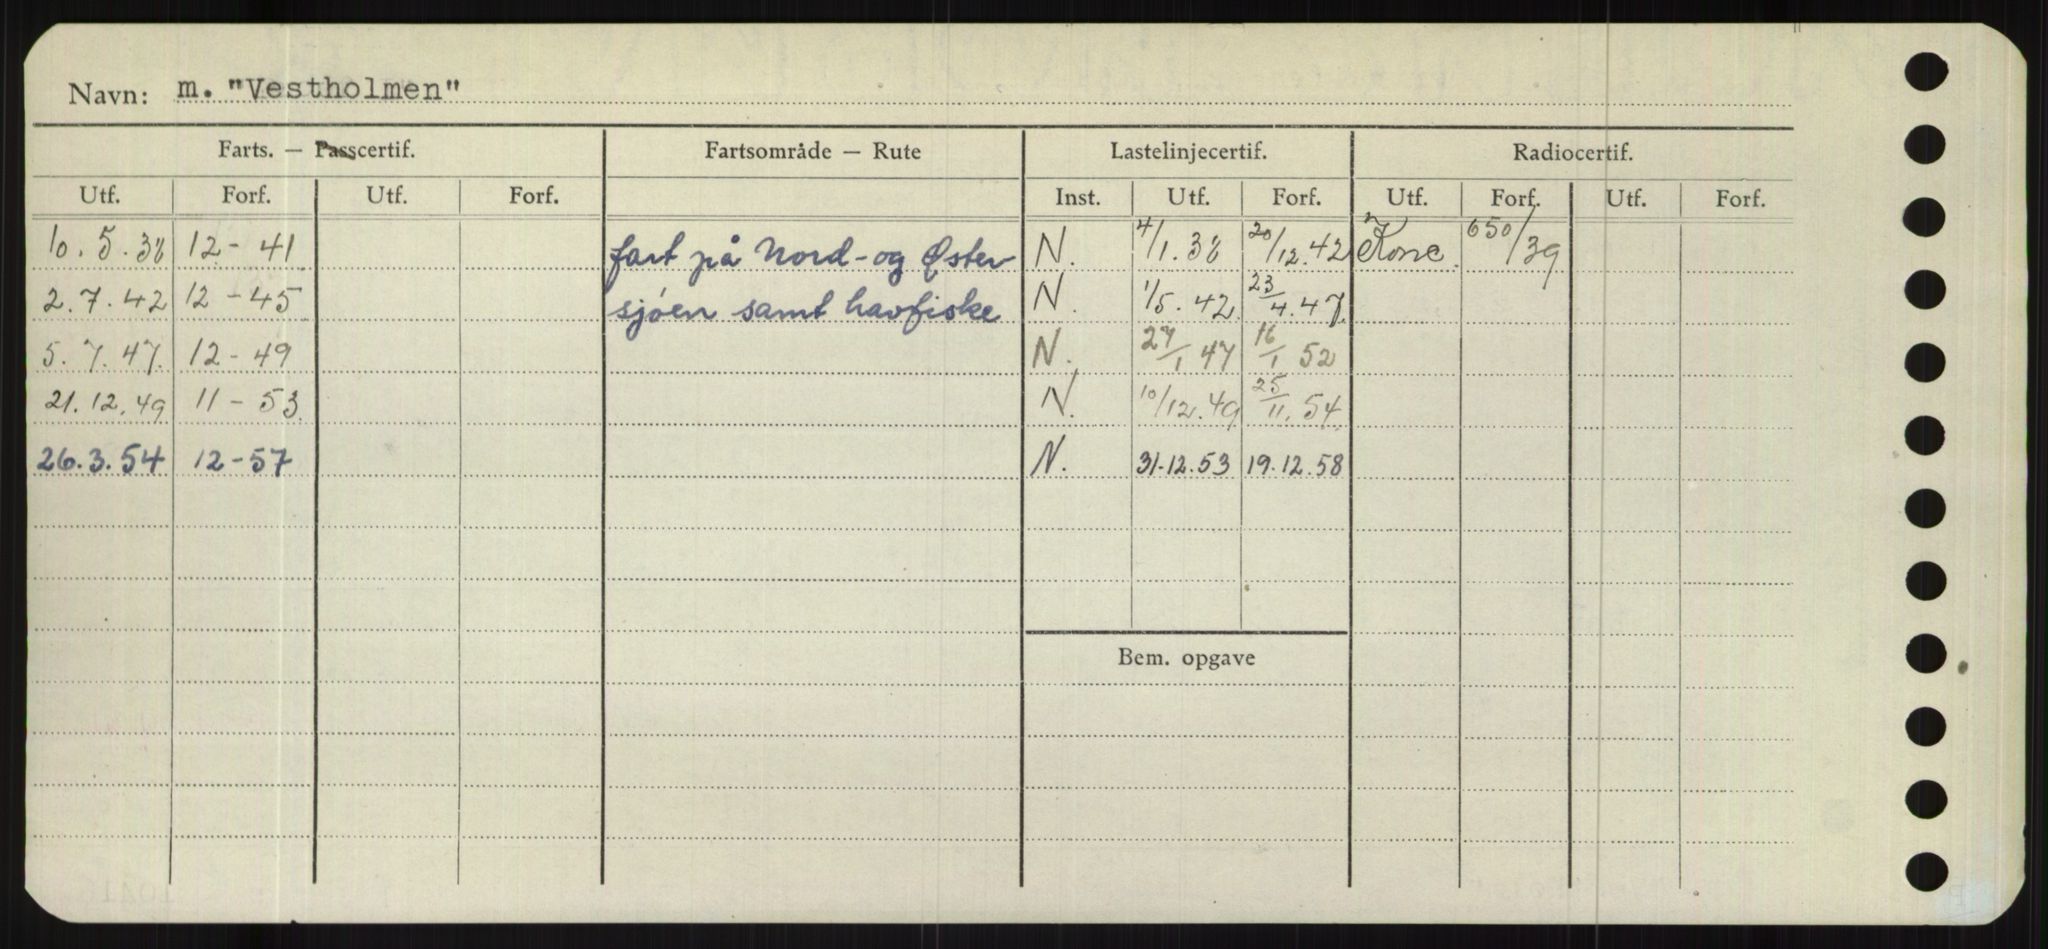 Navn: m. "Vestholmen"
Farts. — Passcertif. Fartsområde — Rute Lastelinjecertif. Radiocertif.
Utf. Forf. Utf. Forf. Inst. Utf. Forf. Utf. Forf. Utf. Forf.
10.5.38 12-41 fart på Nord- og Øster N. 4/1.38 20/12.42 650/39
2.7.42 12-45 sjøen samt havfiske N. 1/5.42 23/4.47
5.7.47 12-49 N. 27/1 47 16/1 52
21.12.49 11-53 N. 10/12.49 25/11.54
26.3.54 12-57 N. 31.12.53 19.12.58
Bem. opgave